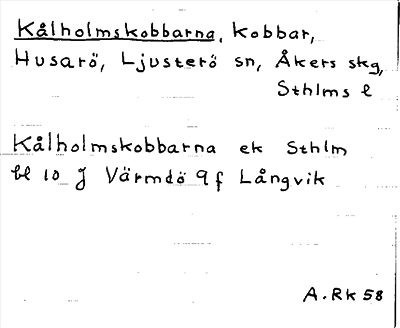 Kålholmskobbarna, kobbar,
Husarö, Ljusterö sn, Åkers skg,
Sthlms l
Kålholmskobbarna ek Sthlm
bl 10 J Värmdö 9 f Långvik
A. Rk 58